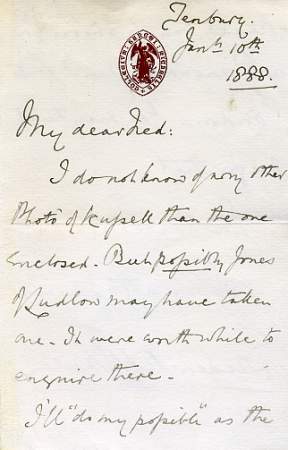 Tenbury.
Jan. 10th
1888.
COLLEGIUM SANCTI MICHAELIS
My dear Fred:
I do not know of any other
Photo of Russell than the one
enclosed. But possibly Jones
of Ludlow may have taken
one. It were worth while to
enquire there.
I'll "do my possible" as the